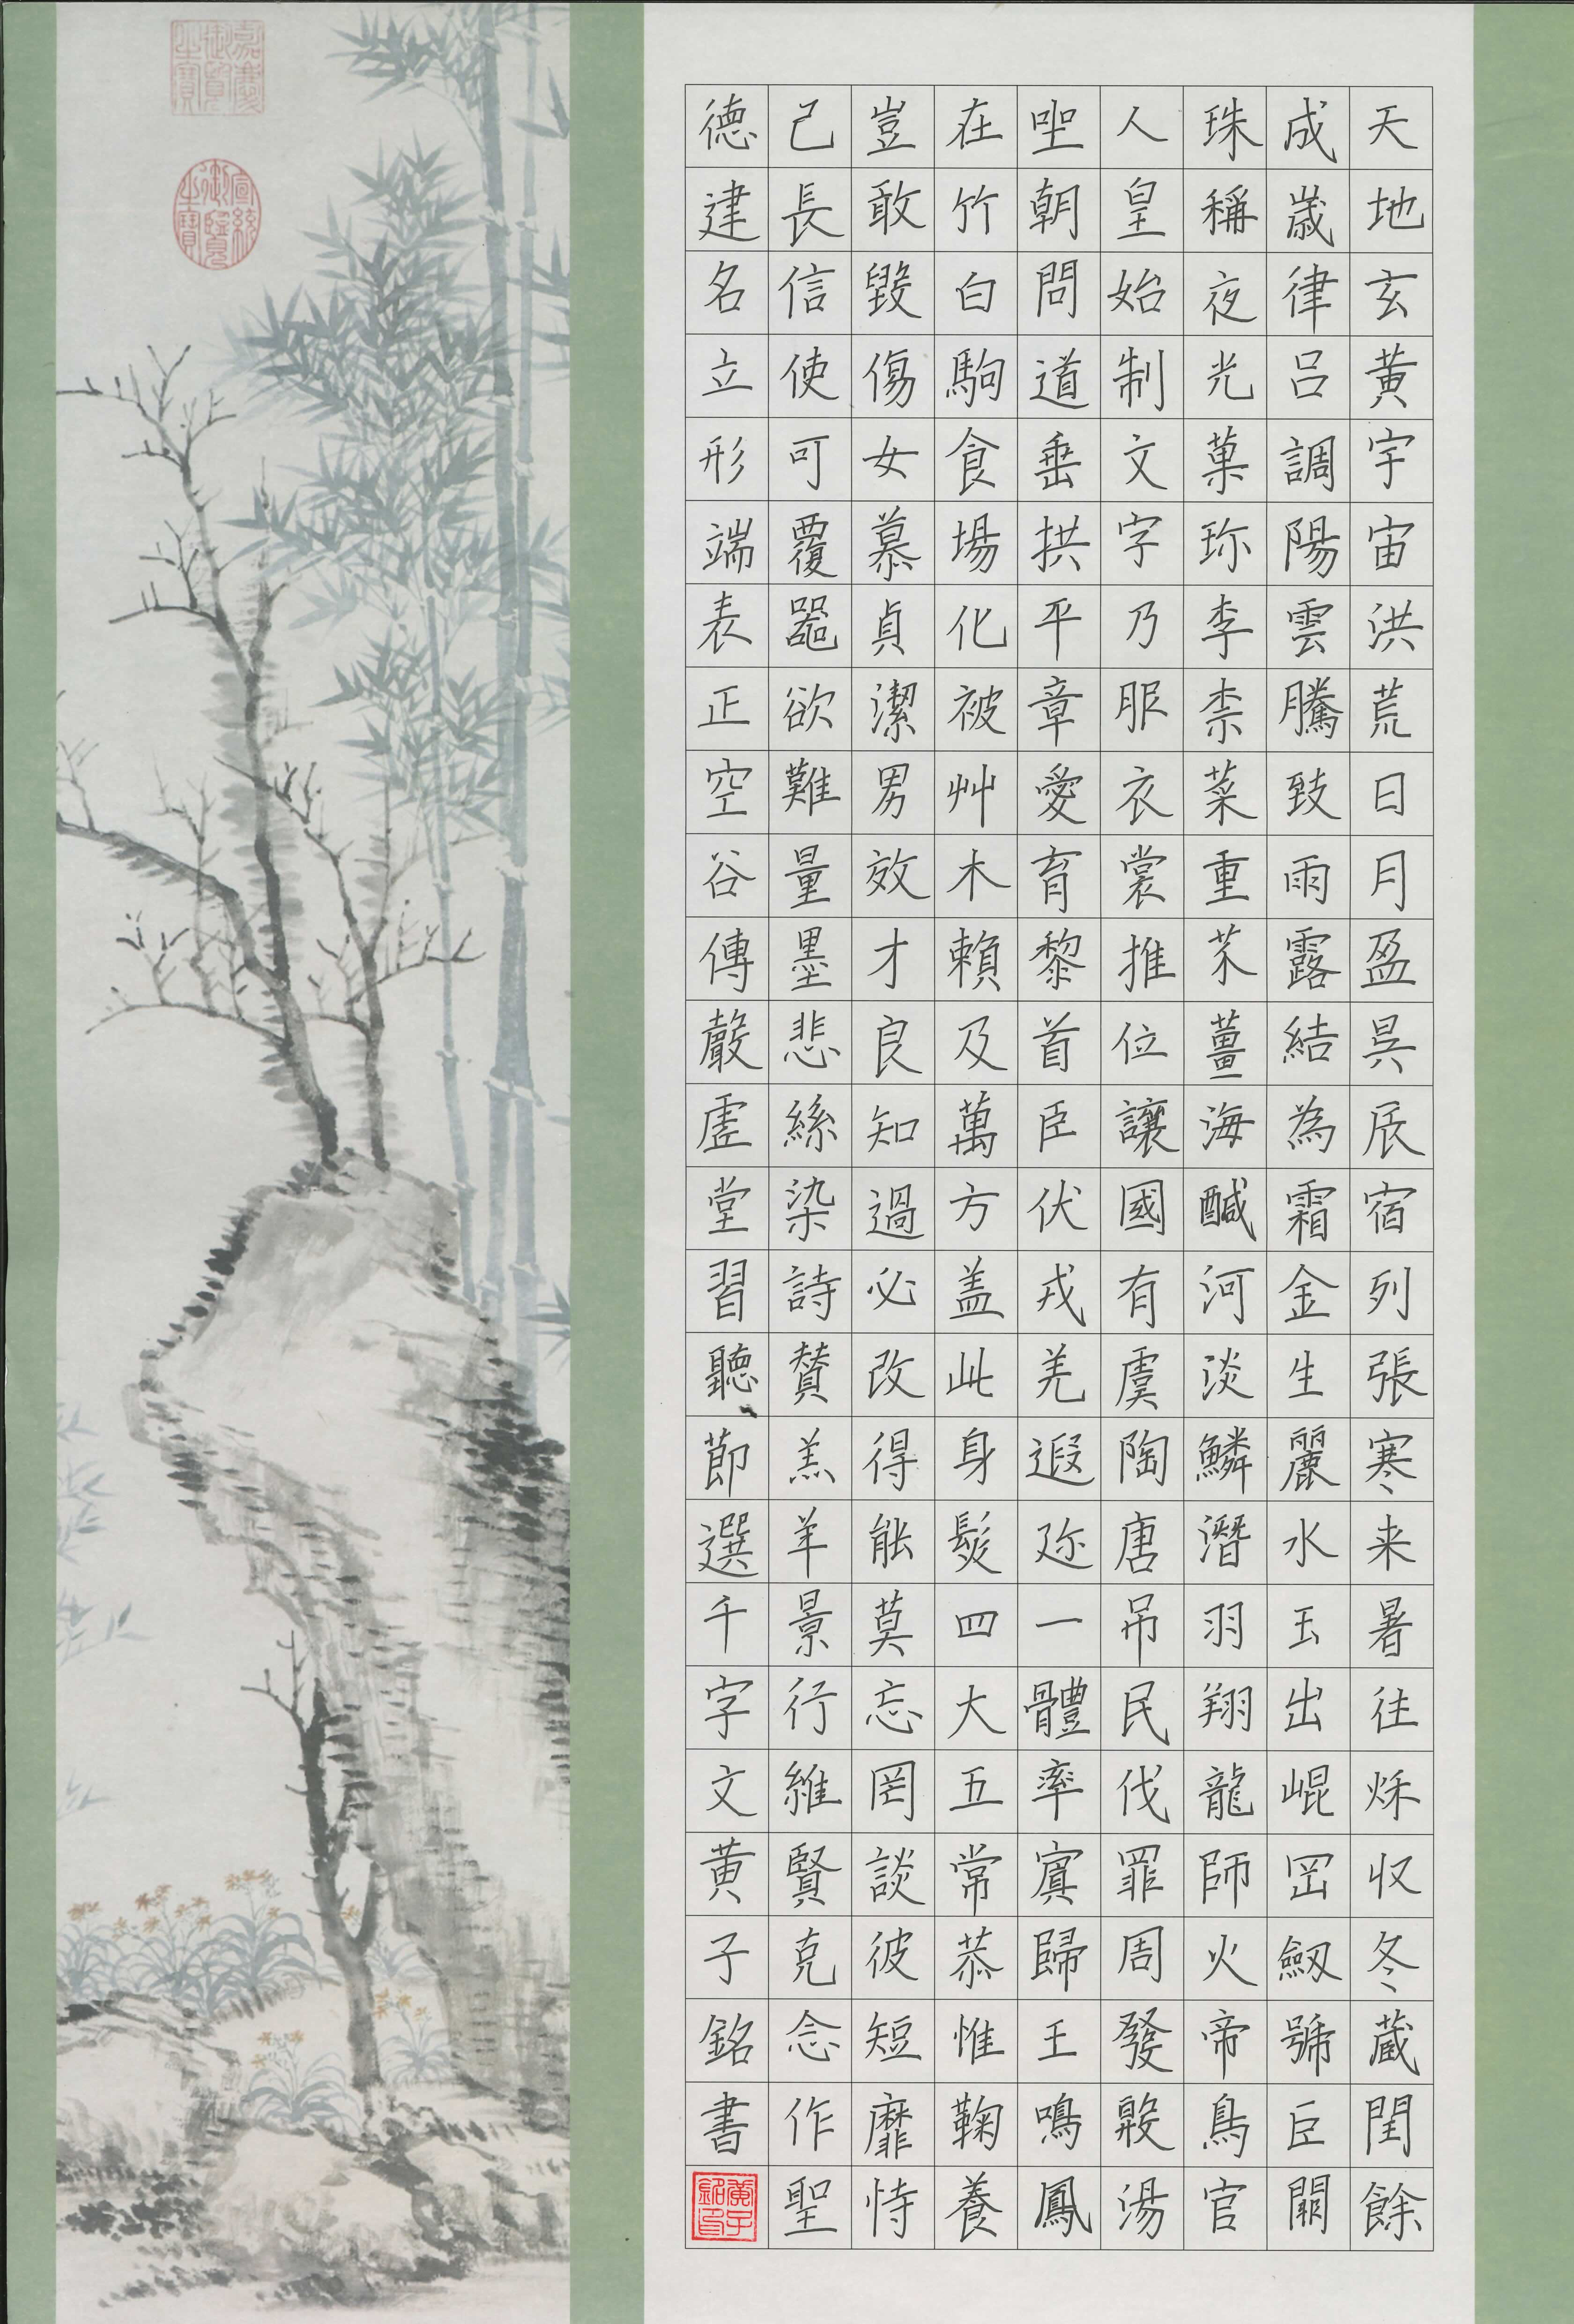 天地玄黃宇宙洪荒日月盈昃辰宿列張寒来暑往秌収冬蔵閏餘
成歳律呂調陽雲騰致雨露結為霜金生麗水玉出崐岡劔號巨闕
珠稱夜光菓珎李柰菜重芥薑海醎河淡鱗潛羽翔龍師火帝鳥官
人皇始制文字乃服衣裳推位讓國有虞陶唐吊民伐罪周發殷湯
坐朝問道垂拱平章愛育黎首臣伏戎羌遐迩一體率賓歸王鳴鳳
在竹白駒食場化被艸木賴及萬方盖此身髮四大五常恭惟鞠養
豈敢毀傷女慕貞潔男效才良知過必改得能莫忘罔談彼短靡恃
己長信使可覆器欲難量墨悲絲染詩賛羔羊景行維賢克念作聖
德建名立形端表正空谷傳聲虛堂習聽節選千字文黄子銘書
黃子銘印
嘉慶御覽之寶
宣統御覽之寶